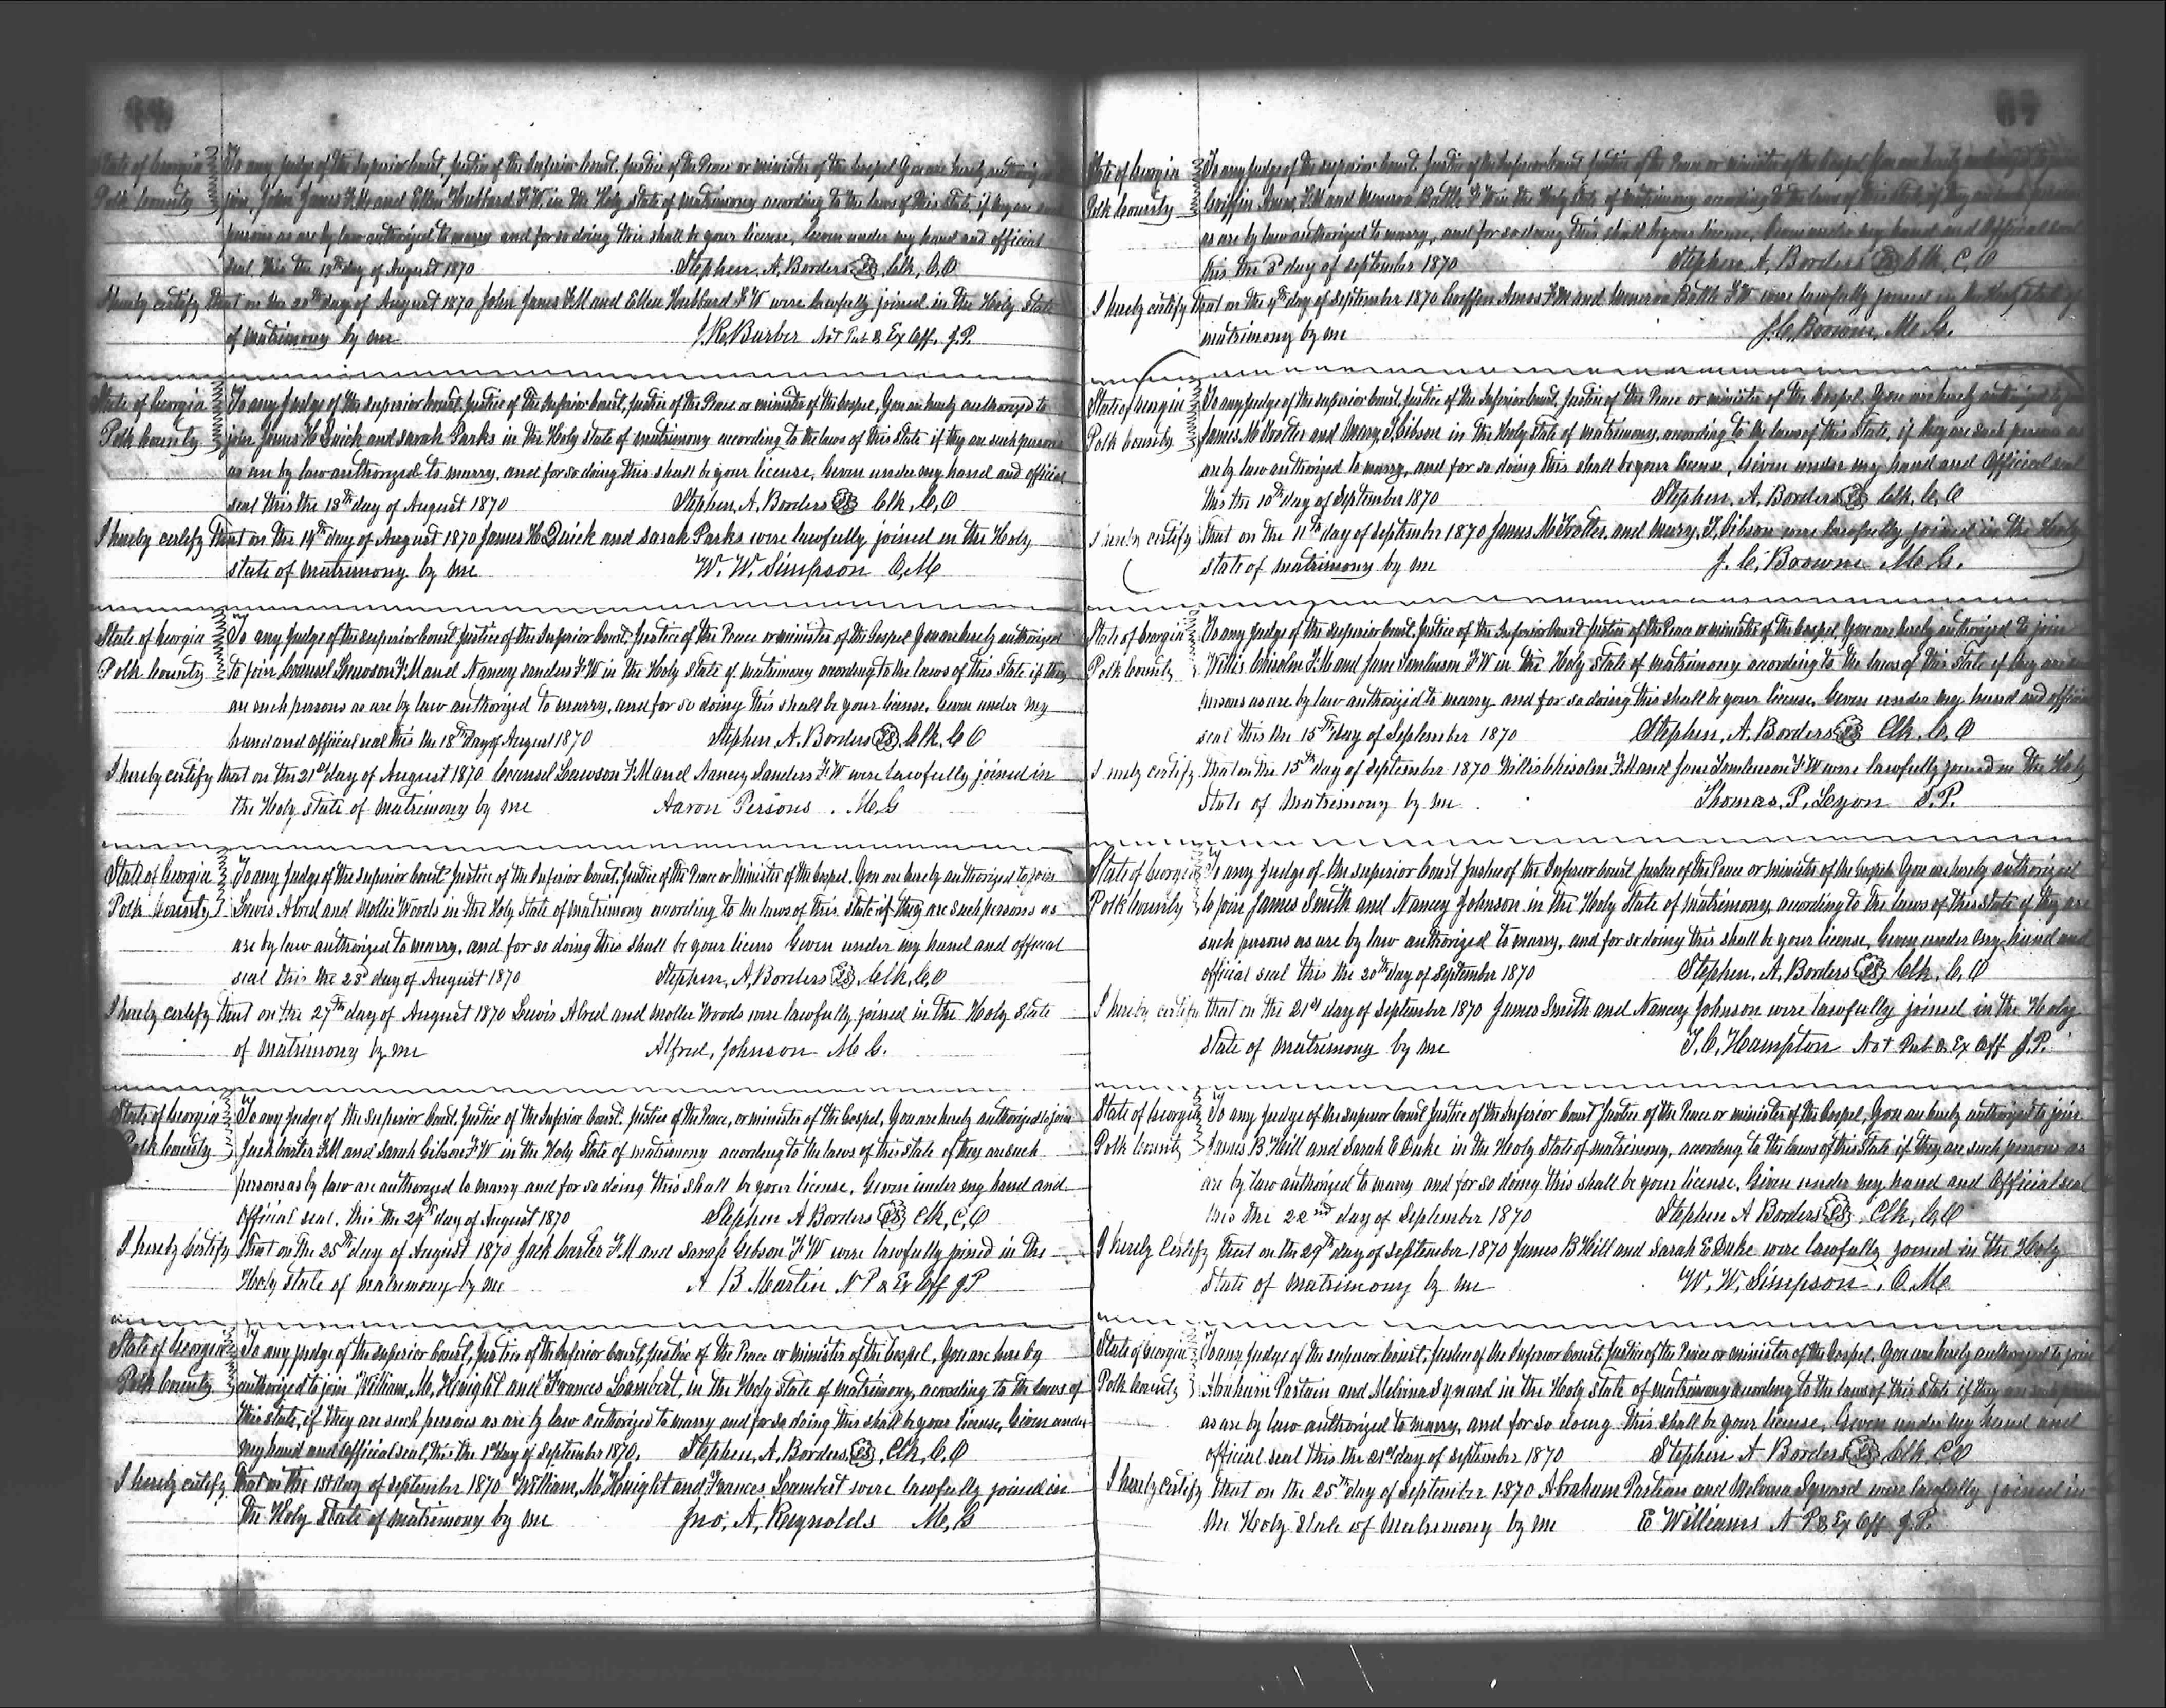 State of Georgia To any Judge of the Superior Court, Justice of the Inferior Court, Justice of the Peace or minister of the Gospel You are hereby authorized
Polk County join John James F.M and Ellen Hubbard F.W. in the Holy State of matrimony according to the laws of this State, if they are such
persons as are by law authorized to marry and for so doing this shall be your license, Given under my hand and official
seal this the 13th day of August 1870 Stephen, A, Borders Clk, C, O
I hereby certify that on the 20th day of August 1870 John James F.M and Ellen Hubbard F W were lawfully joined in the Holy State
of matrimony by me J. R. Barber Not Pub & Ex Off. J.P.
State of Georgia To any Judge of the Superior Court, Justice of the Inferior Court, Justice of the Peace or minister of the Gospel, You are hereby authorized to
Polk County join James H Quick and Sarah Parks in the Holy State of matrimony according to the laws of this State if they are such persons
as are by law authorized to marry, and for so doing this shall be your license, Given under my hand and official
seal this the 13th day of August 1870 Stephen, A, Borders L S Clk, C, O
I hereby certify that on the 14th day of August 1870 James H Quick and Sarah Parks were lawfully joined in the Holy
state of matrimony by me W. W. Simpson O, M
State of Georgia To any Judge of the Superior Court Justice of the Inferior Court, Justice of the Peace or minister of the Gospel You are hereby authorized
Polk County to join Counsel Lawson F.M and Nancy Sanders F.W in the Holy State of matrimony according to the laws of this State if they
are such persons as are by law authorized to marry, and for so doing this shall be your license, Given under my
hand and official seal this the 18th day of August 1870 Stephen, A, Borders L S Clk, C O
I hereby certify that on the 21st day of August 1870 Counsel Lawson F.M and Nancy Sanders F.W were lawfully joined in
the Holy State of matrimony by me Aaron Persons. M.G
State of Georgia To any Judge of the Superior Court Justice of the Inferior Court, Justice of the Peace or Minister of the Gospel, You are hereby authorized to join
Polk County Lewis Alred and Mollie Woods in the Holy State of matrimony according to the laws of this State if they are such persons as
are by law authorized to marry, and for so doing this shall be your licens Given under my hand and official
seal this the 23d day of August 1870 Stephen, A, Borders L S Clk, C, O
I hereby certify that on the 27th day of August 1870 Lewis Alred and Mollie Woods were lawfully joined in the Holy State
of matrimony by me Alfred, Johnson M G.
State of Georgia To any Judge of the Superior Court, Justice of the Inferior Court, Justice of the Peace, or minister of the Gospel, You are hereby authorized to join
Polk County Jack Carter F.M and Sarah Gibson F.W in the Holy State of matrimony according to the laws of this State if they are such
persons as by law are authorized to marry and for so doing this shall be your license, Given under my hand and
Official seal, this the 24th day of August 1870 Stephen A Borders L S Clk, C, O
I hereby Certify that on the 25th day of August 1870 Jack Carter F.M and Sarah Gibson F W were lawfully joined in the
Holy State of matrimony by me A B Martin N P & Ex Off J P
State of Georgia To any judge of the Superior Court, Justice of the Inferior Court, Justice of the Peace or Minister of the Gospel, You are here by
Polk County authorized to join William, M, Knight and Frances Lambert, in the Holy State of matrimony, according to the laws of
this state, if they are such persons as are by law authorized to marry and for so doing this shall be your license, Given under
my hand and official seal, this the 1st day of September 1870. Stephen, A, Borders, L S, Clk, C, O
I hereby certify that on the 1st day of September 1870 William, M, Knight and Frances Lambert were lawfully joined in
the Holy State of matrimony by me Jno, A, Reynolds M, G
67
State of Georgia To any Judge of the Superior Court, Justice of the Inferior Court Justice of the Peace or minister of the Gospel You are hereby authorized to join
Polk County Griffin Amos, F.M and Menerva Battle F W in the Holy State of matrimony according to the laws of this State if they are such persons
as are by law authorized to marry, and for so doing this shall be your license, Given under my hand and Official seal
this the 3d day of September 1870 Stephen A, Borders Clk C, O
I hereby certify that on the 4th day of September 1870 Griffin Amos F.M and Menerva Battle F.W were lawfully joined in the Holy State of
matrimony by me J. C. Browne, M. G.
State of Georgia To any Judge of the Superior Court, Justice of the Inferior Court, Justice of the Peace or minister of the Gospel, You are hereby authorized to join
Polk County James M Trotter and Mary, T, Gibson in the Holy State of matrimony, according to the laws of this State, if they are such persons as
are by law authorized to marry, and for so doing this shall be your license, Given under my hand and Official seal
this the 10th day of September 1870 Stephen, A, Borders L S Clk, C, O
I hereby certify that on the 11th day of September 1870 James M Trotter, and Mary, T, Gibson were lawfully joined in the Holy
State of matrimony by me J. C. Browne M. G.
State of Georgia To any Judge of the Superior Court, Justice of the Inferior Court Justice of the Peace or minister of the Gospel, You are hereby authorized to join
Polk County Willis Chisolm F.M and Jane Tomlinson F W in the Holy State of matrimony according to the laws of this State if they are such
persons as are by law authorized to marry and for so doing this shall be your license, Given under my hand and official
seal this the 15th day of September 1870 Stephen, A, Borders L S Clk, C, O
I hereby certify that on the 15th day of September 1870 Willis Chisolm F.M and Jane Tomlinson F W were lawfully joined in the Holy
State of Matrimony by me Thomas, P, Lyon J.P.
State of Georgia To any Judge of the Superior Court Justice of the Inferior Court Justice of the Peace or minister of the Gospel You are hereby authorized
Polk County to join James Smith and Nancy Johnson in the Holy State of matrimony, according to the laws of this State if they are
such persons as are by law authorized to marry, and for so doing this shall be your license, Given under my hand and
official seal this the 20th day of September 1870 Stephen, A, Borders L S Clk, C, O
I hereby certify that on the 21st day of September 1870 James Smith and Nancy Johnson were lawfully joined in the Holy
State of Matrimony by me T, C, Hampton Not Pub & Ex Off J.P.
State of Georgia To any Judge of the Superior Court Justice of the Inferior Court Justice of the Peace or minister of the Gospel, You are hereby authorized to join
Polk County James B Hill and Sarah E Duke in the Holy State of matrimony, according to the laws of this State if they are such persons as
are by law authorized to marry and for so doing this shall be your license, Given under my hand and Official seal
this the 22nd day of September 1870 Stephen A Borders L S, Clk, C, O
I hereby Certify that on the 29th day of September 1870 James B Hill and Sarah E Duke were lawfully joined in the Holy
State of Matrimony by me W, W, Simpson, O. M.
State of Georgia To any Judge of the Superior Court, Justice of the Inferior Court, Justice of the Peace or minister of the Gospel, You are hereby authorized to join
Polk County Abraham Partain and Melvina Synard in the Holy State of matrimony according to the laws of this State if they are such persons
as are by law authorized to marry, and for so doing this shall be your license, Given under my hand and
official seal this the 21st day of September 1870 Stephen A Borders L S Clk C, O
I hereby certify that on the 25th day of September 1870 Abraham Partain and Melvina Synard were lawfully joined in
the Holy State of Matrimony by me E Williams N P & Ex Off J. P.